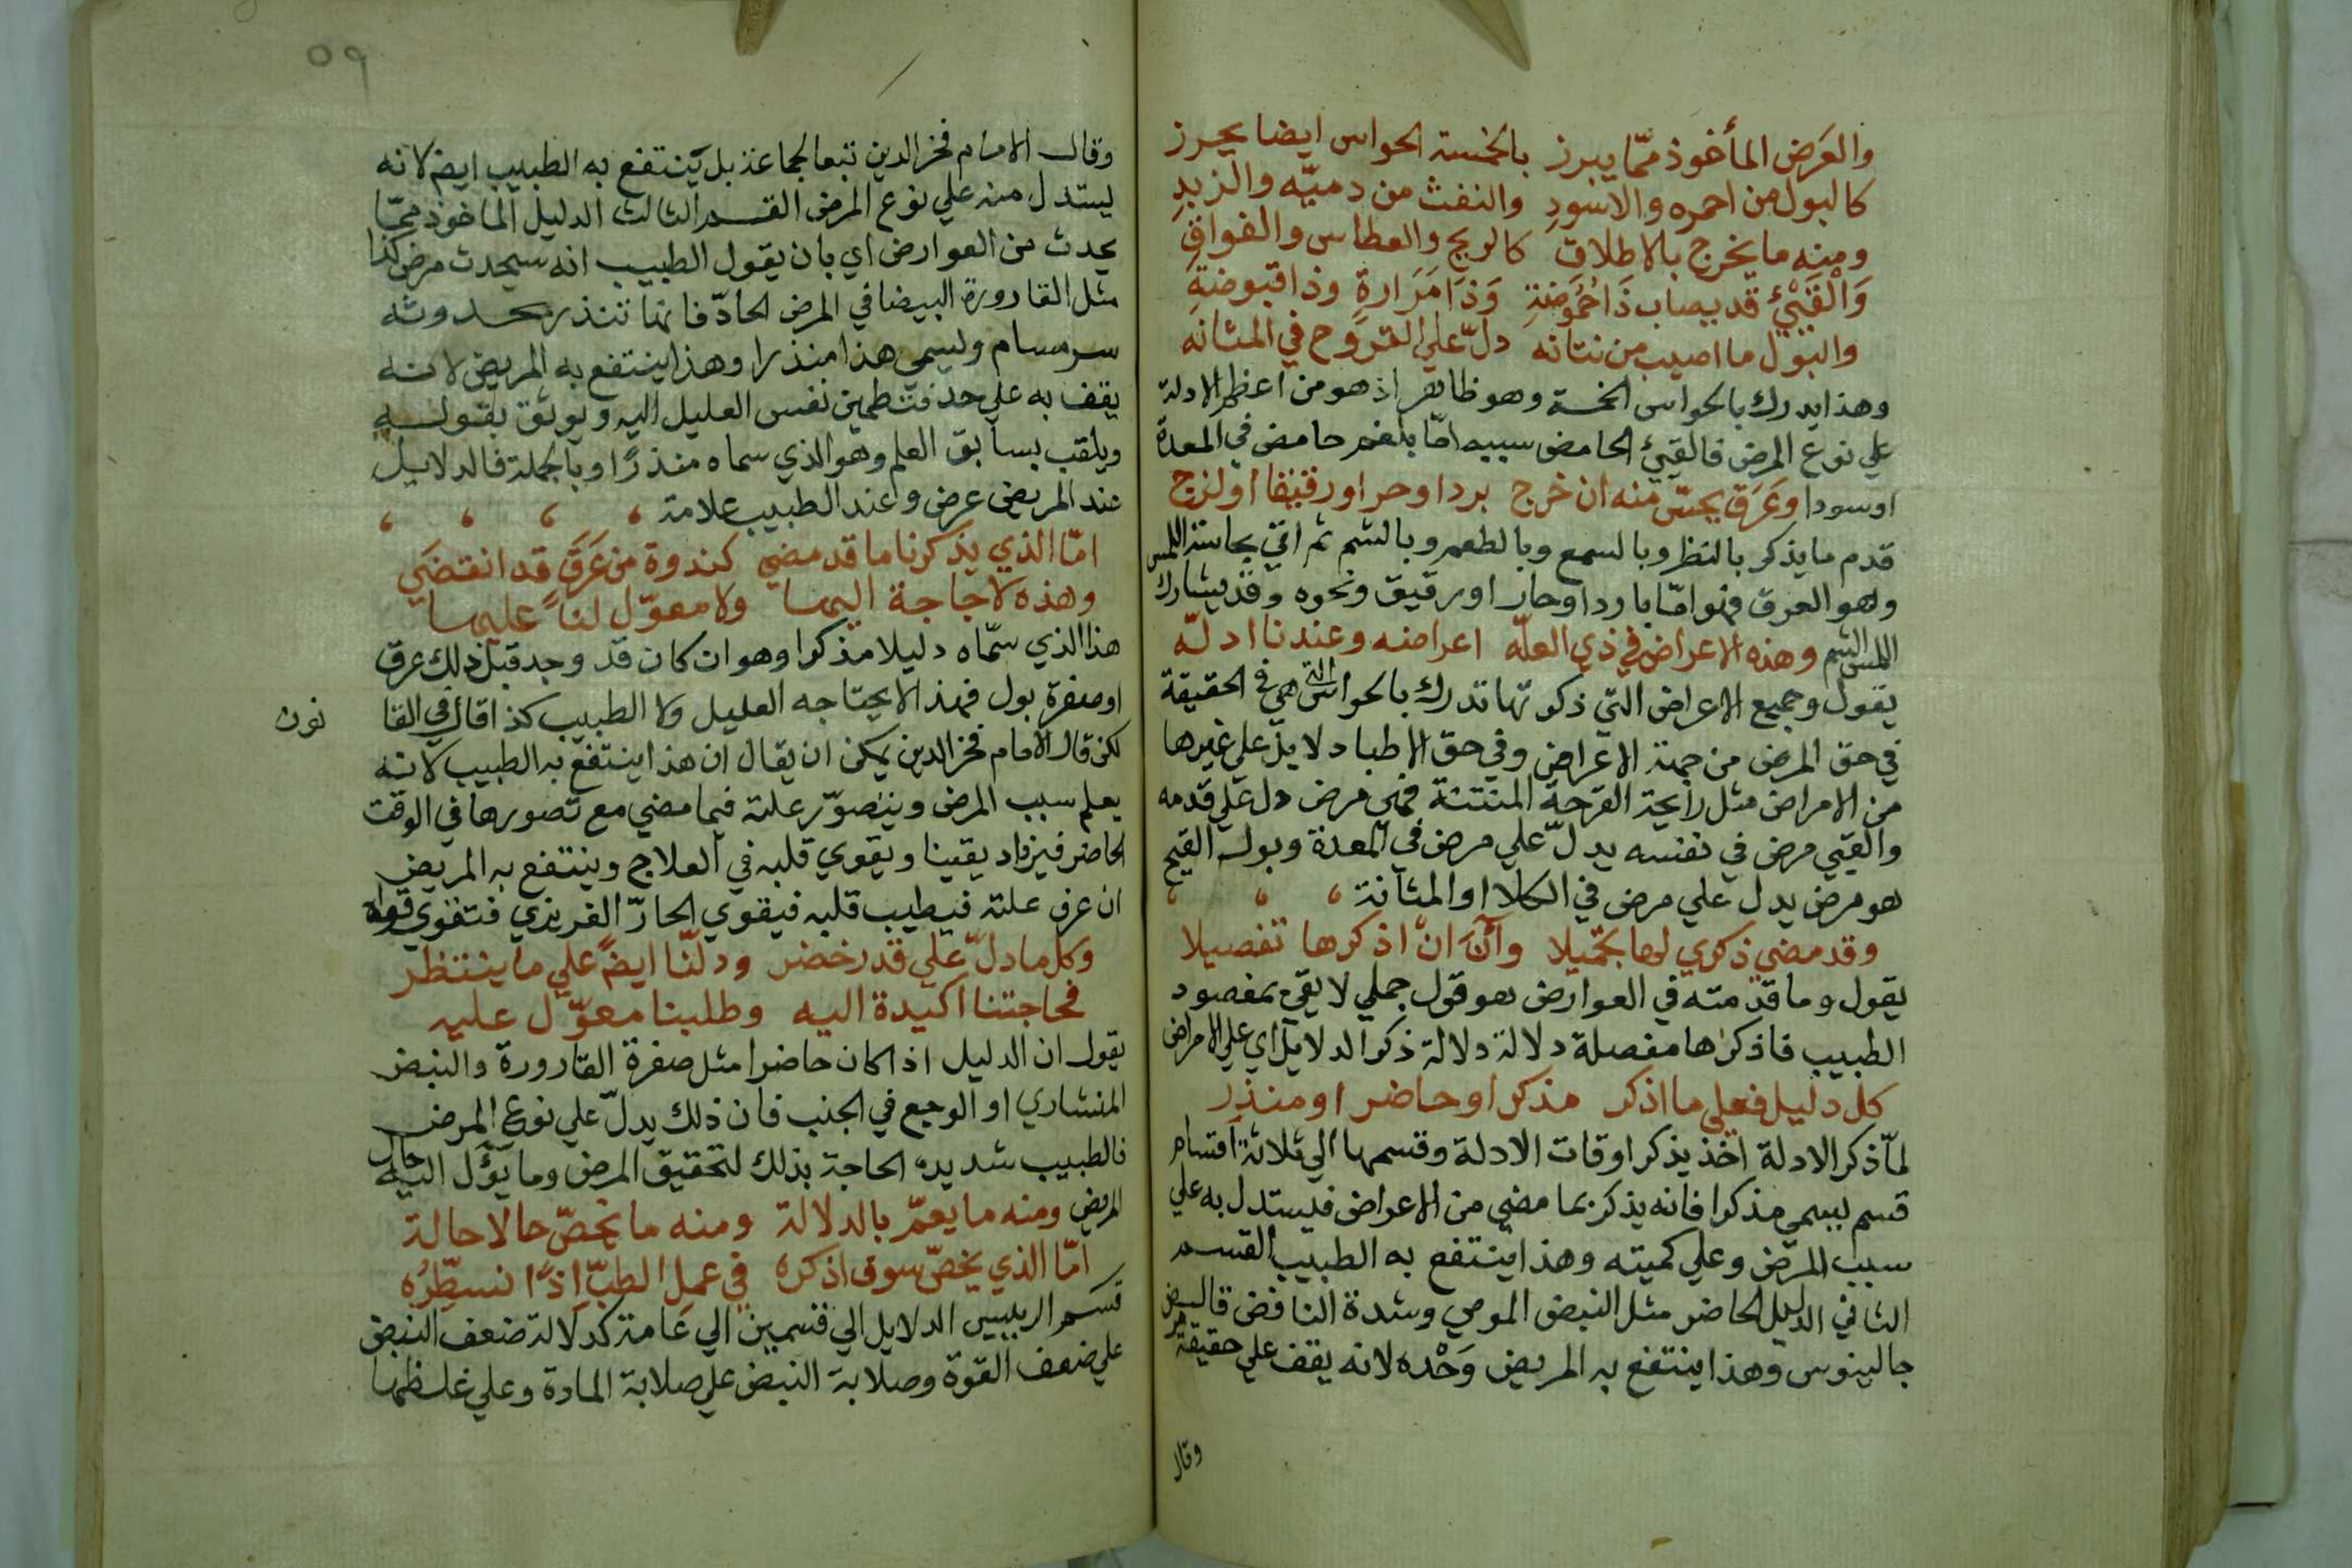 والعَرَض المأخوذ ممّا يبرز بالخمسة الحواس ايضا يحرز
كالبول من احمره والاسودِ والنفث من دميّه والزبدِ
ومنه ما يخرج بالاطلاق كالريح والعطاس والفواق
وَالْقَيْئُ قد يصاب ذَا حُمُوضَةِ وَذَا مَرَارةٍ وذا قبوضةِ
والبَوْل ما اصيب من نتانه دلّ علي القروح في المثانه
وهذا يدرك بالحواس الخمسة وهو ظاهر اذ هو من اعظم الادلة
علي نوع المرض فالقيئ الحامض سببه امّا بلغم حامض في المعدة
او سودا وعَرَق يحسّ منه ان خرج بردا وحر اورقيقا او لزج
قدم ما يذكر بالنظر وبالسمع وبالطعم وبالشم ثم اتي بحاسة اللمس
وهو العرق فهو امّا باردا وحار اورقيق ونحوه وقد يشارك
اللمس الشم وهذه الاعراض في ذي العلّه اعراضه وعندنا ادلّه
يقول وجميع الاعراض التي ذكرتها تدرك بالحواس التي هي في الحقيقة
في حق المرض من جهة الاعراض وفي حق الاطبا دلايل علي غيرها
من الامراض مثل رايحة القرحة المنتنة فهي مرض دل علي قدمه
والقيي مرض في نفسه يدلّ علي مرض في المعدة وبول القيح
هو مرض يدل علي مرض في الكلا او المثانة
وقد مضي ذكري لها بحمّيلا وآنَ انْ اذكرها تفصيلا
يقول وما قدمته في العوارض هو قول جملي لا يفي بمقصود
الطبيب فاذكرها مفصلة دلالة دلالة ذكر الدلايل اي علي الامراض
كل دليل فعلي ما اذكر مذكر او حاضر او منذر
لمّا ذكر الادلة اخذ يذكر اوقات الادلة وقسمها الي ثلاثة اقسام
قسم يسمي مذكرا فانه يذكر بما مضي من الاعراض فيستدل به علي
سبب المرض وعلي كميته وهذا ينتفع به الطبيب القسم
الثاني الدليل الحاضر مثل النبض الموجي وشدة النافض قال
جالينوس وهذا ينتفع به المريض وَحْده لانه يقف علي حقيقة
وقال
٥٩
وقال الامام فخر الدين تبعا لجماعة بل يَنتفع به الطبيب ايض لانه
يستدل منه علي نوع المرض القسم الثالث الدليل الماخوذ ممّا
يحدث من العوارض اي بان يقول الطبيب انه سيحدث مرض كذا
مثل القارورة البيضا في المرض الحادّ فانها تنذر بحدوث
سرسام ويسمي هذا منذرا وهذا ينتفع به المريض لانه
يقف به علي حد فتطمين نفس العليل اليه ويوثق بقوله
ويلقب بسابق العلم وهو الذي سماه منذرًا وبالجملة فالدلايل
عند المريض عرض وعند الطبيب علامة
امّا الذي يذكرنا ما قد مضي كندوة من عَرَقٍ قد انقضَي
وهذه لا حاجة اليها ولا معوّل لنا عليها
هذا الذي سمّاه دليلا مذكرا وهو ان كان قد وجد قبل ذلك عرق
او صفرة بول فهذا لا يحتاجه العليل ولا الطبيب كذا قال في القا
نون
لكن قال الامام فخر الدين يمكن ان يقال ان هذا ينتفع به الطبيب لانه
يعلم سبب المرض ويتصوّر علته فيما مضي مع تصورها في الوقت
الحاضر فيزداد يقينا ويقوي قلبه في العلاج وينتفع به المريض
ان عرف علته فيطيب قلبه فيقوي الحارّ الغريزي فتقوي قواه
وكل ما دلّ علي قد خضر ودلّنا ايضً علي ما ينتظر
فحاجتنا اكيدة اليه وطلبنا معوّل عليه
يقول ان الدليل اذا كان حاضرا مثل صفرة القارورة والنبض
المنشاري او الوجع في الجنب فان ذلك يدلّ علي نوع المرض
فالطبيب شديد الحاجة بذلك لتحقيق المرض وما يؤل اليه حال
المريض ومنه ما يعمّ بالدلالة ومنه ما يخصّ حالا حالة
امّا الذي يخصّ سوف اذكره في عمل الطبّ اذًا نسطّرُه
قسم الرييس الدلايل الي قسمين الي عامة كدلالة ضعف النبض
علي ضعف القوّة وصلابة النبض علي صلابة المادة وعلي غلظها